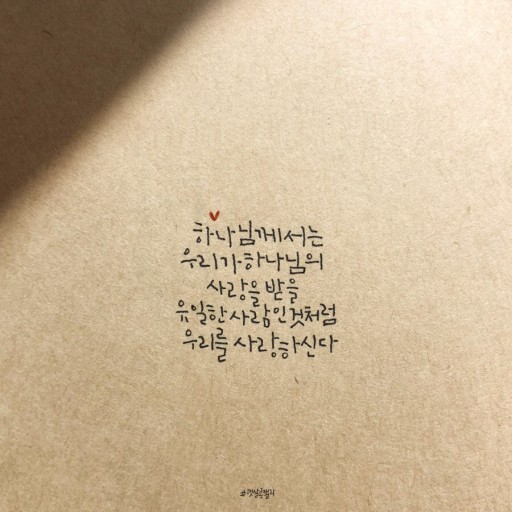 하나님께서는
우리가 하나님의
사랑을 받을
유일한 사람인것처럼
우리를 사랑하신다